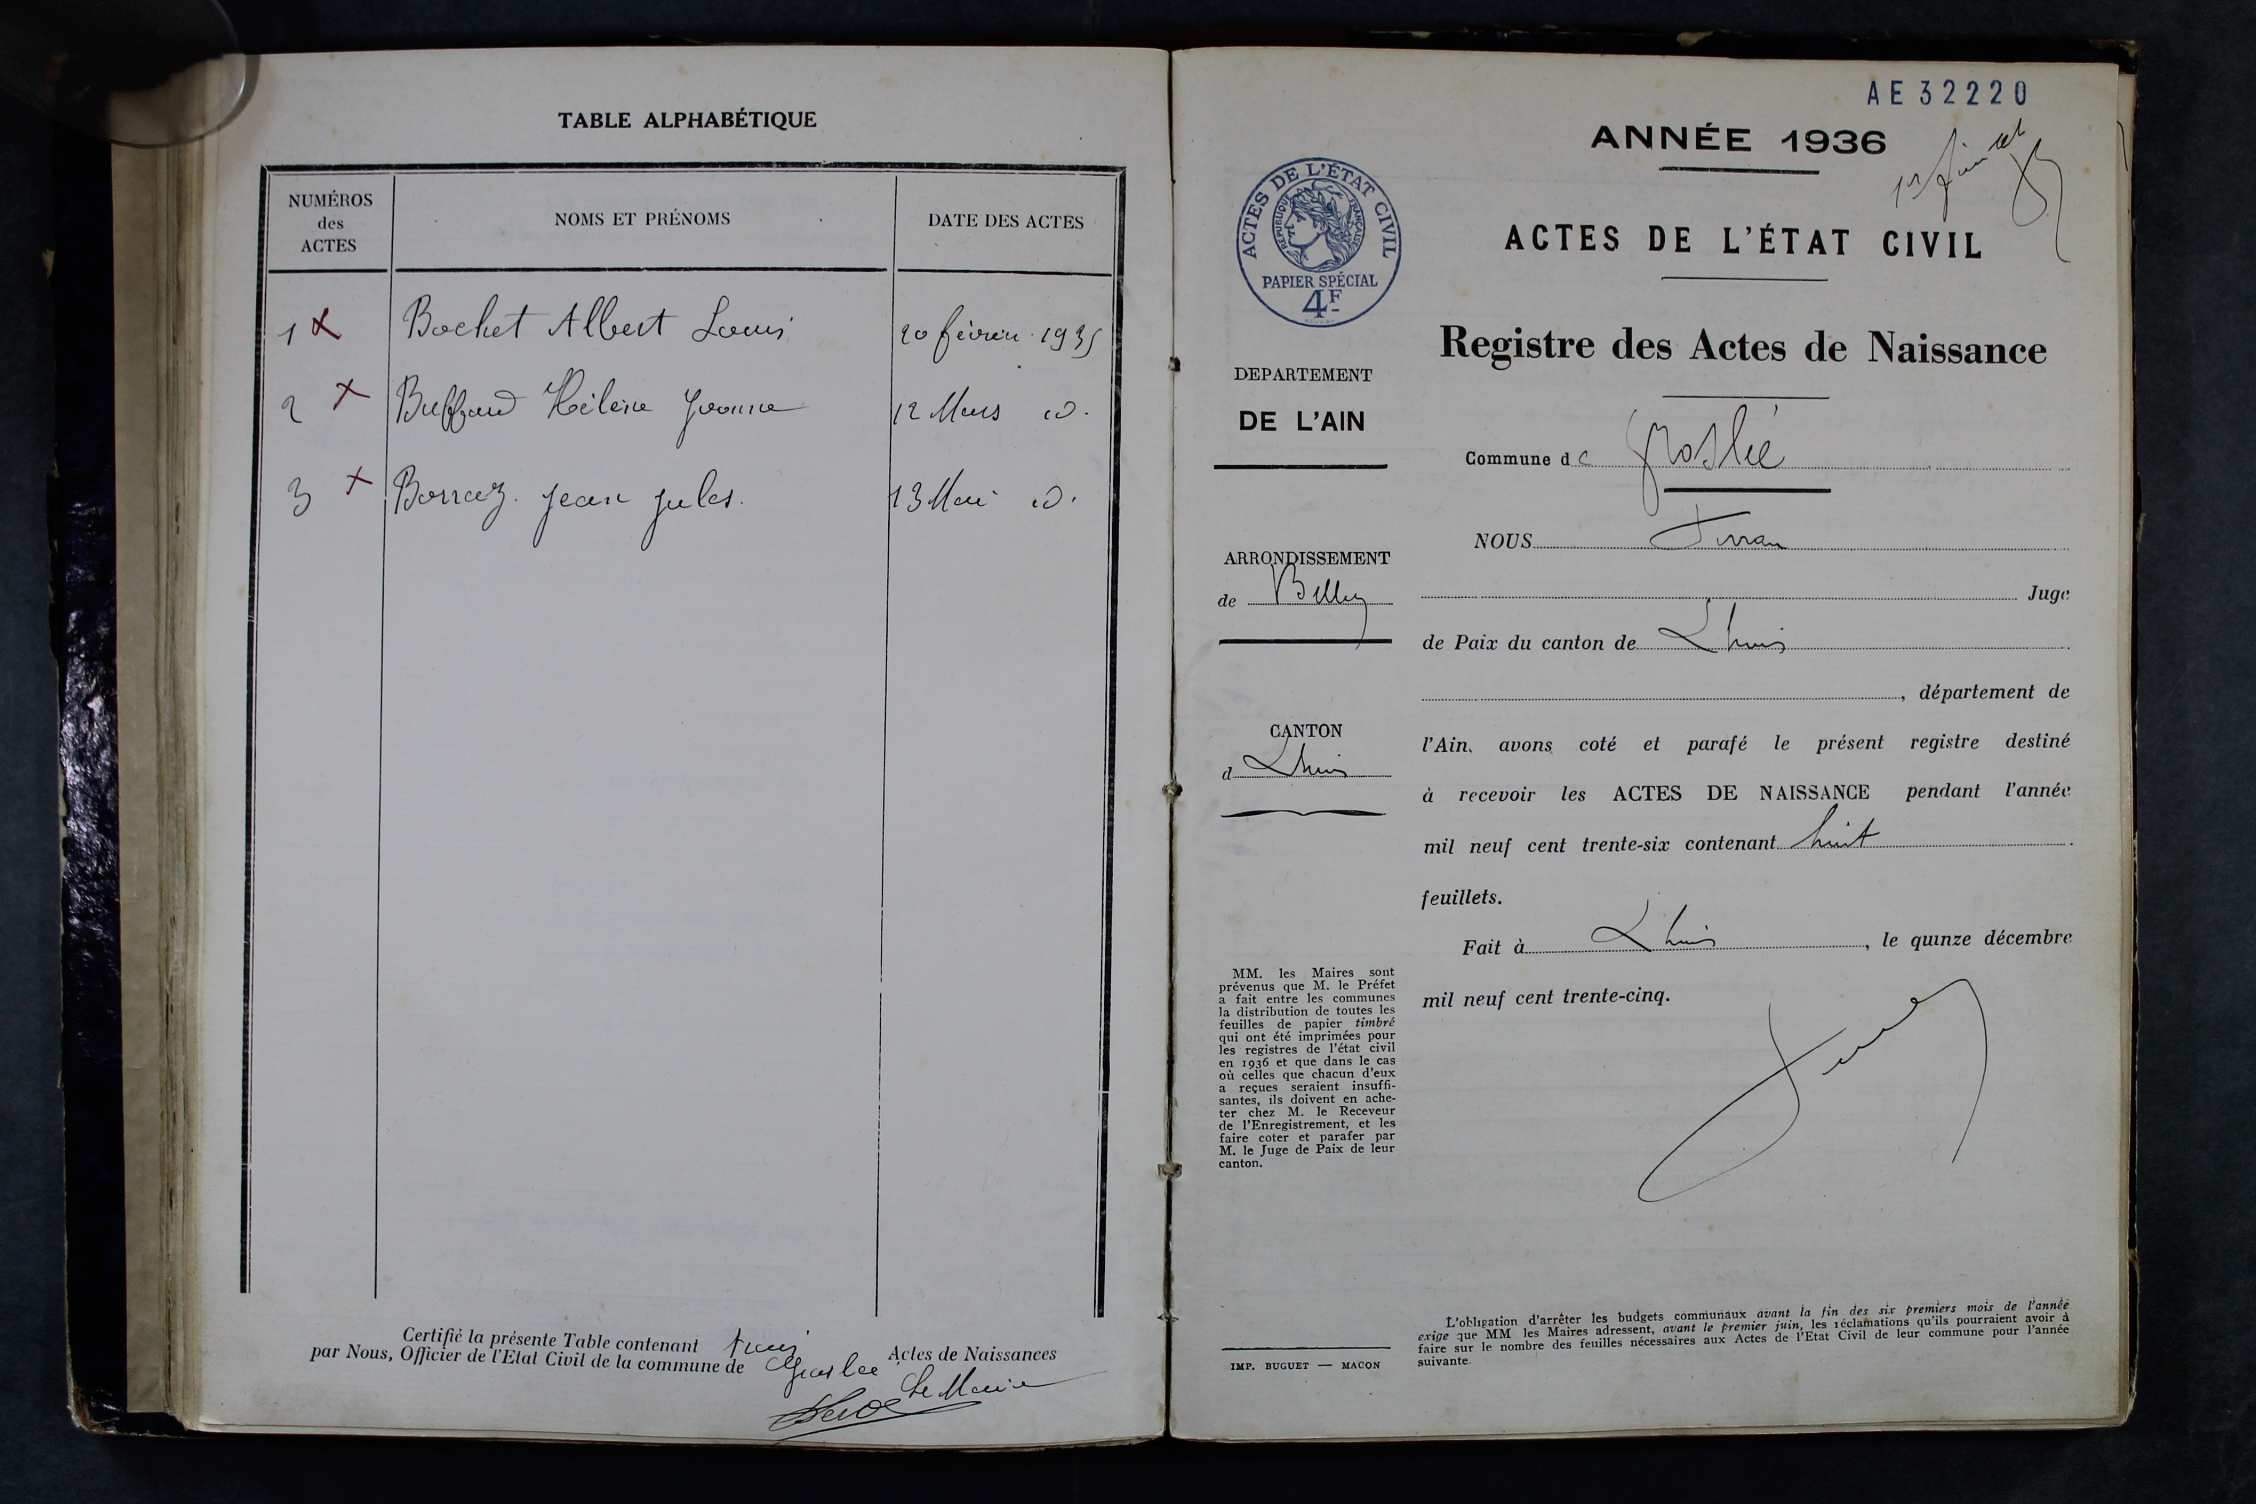 TABLE ALPHABÉTIQUE
NUMÉROS
des
ACTES
NOMS ET PRÉNOMS
DATE DES ACTES
1 Bochet Albert Louis 20 février 1935
2 Buffaud Hélène Yvonne 12 Mars id.
3 Borraz Jean Jules. 13 Mai id.
Certifié la présente Table contenant trois Actes de Naissances
par Nous, Officier de l'Etat Civil de la commune de Groslée
Le Maire
AE 32220
ANNÉE 1936
1er feuillet
ACTES DE L'ÉTAT CIVIL
RÉPUBLIQUE FRANÇAISE
PAPIER SPÉCIAL
4F
ACTES DE L'ÉTAT CIVIL
Registre des Actes de Naissance
DEPARTEMENT
DE L'AIN
Commune de Groslée
NOUS
ARRONDISSEMENT
de Belley
Juge
de Paix du canton de Lhuis
, département de
CANTON
d Lhuis
l'Ain, avons coté et parafé le présent registre destiné
à recevoir les ACTES DE NAISSANCE pendant l'année
mil neuf cent trente-six contenant huit
feuillets.
Fait à Lhuis, le quinze décembre
mil neuf cent trente-cinq.
MM. les Maires sont
prévenus que M. le Préfet
a fait entre les communes
la distribution de toutes les
feuilles de papier timbré
qui ont été imprimées pour
les registres de l'état civil
en 1936 et que dans le cas
où celles que chacun d'eux
a reçues seraient insuffi-
santes, ils doivent en ache-
ter chez M. le Receveur
de l'Enregistrement, et les
faire coter et parafer par
M. le Juge de Paix de leur
canton.
IMP. BUGUET — MACON
L'obligation d'arrêter les budgets communaux avant la fin des six premiers mois de l'année
exige que MM les Maires adressent, avant le premier juin, les réclamations qu'ils pourraient avoir à
faire sur le nombre des feuilles nécessaires aux Actes de l'Etat Civil de leur commune pour l'année
suivante.